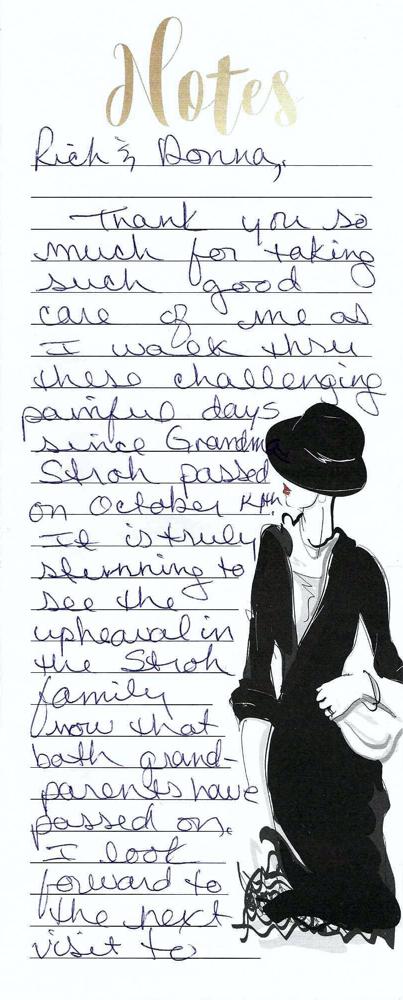 Notes
Rich & Donna,
Thank you so
much for taking
such good
care of me as
I walk thru
these challenging
painful days
since Grandma
Stroh passed
on October
It is truly
stunning to
see the
upheaval in
the Stroh
family
now that
both grand-
parents have
passed on.
I look
forward to
the next
visit to